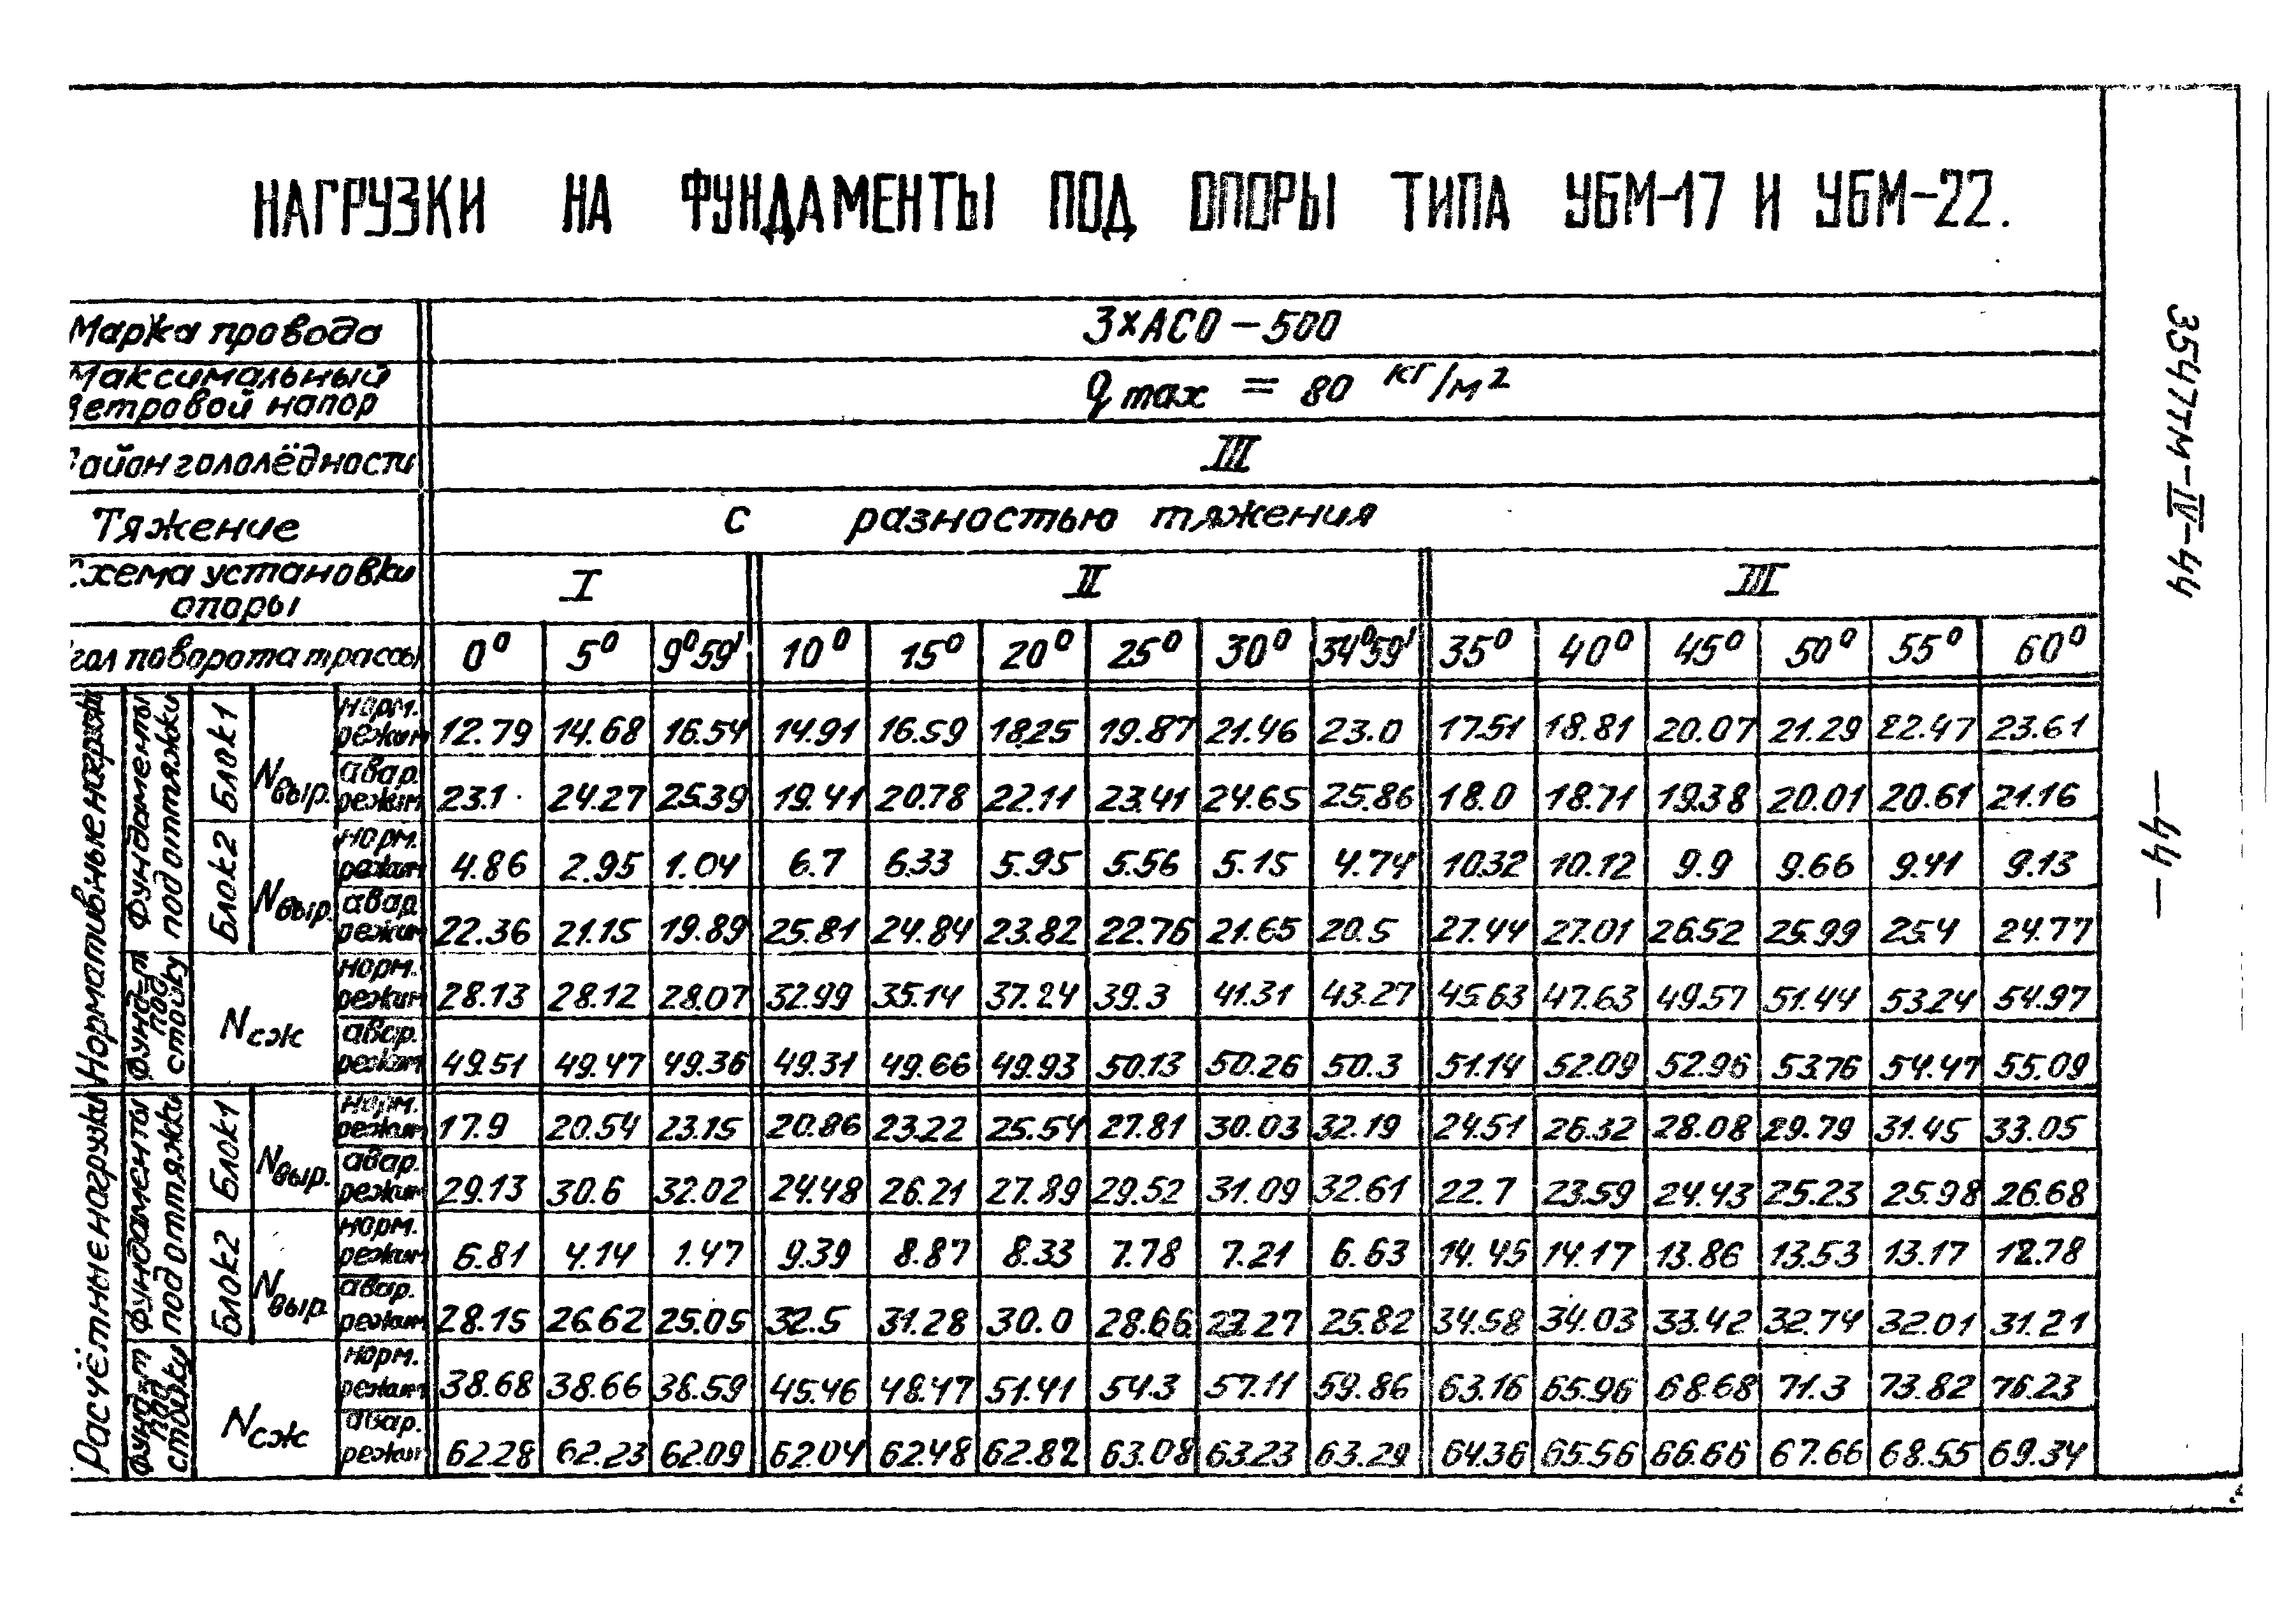 НАГРУЗКИ НА ФУНДАМЕНТЫ ПОД ОПОРЫ ТИПА УБМ-17 И УБМ-22.
Марка провода 3×АСО-500
Максимальный ветровой напор q max = 80 кг/м²
Район гололёдности III
Тяжение С разностью тяжения
Схема установки опоры I II III
Угол поворота трассы 0° 5° 9°59' 10° 15° 20° 25° 30° 34°59' 35° 40° 45° 50° 55° 60°
Нормативные нагрузки
Фундаменты под оттяжки
Блок1 Nвыр. норм. режим 12.79 14.68 16.54 14.91 16.59 18.25 19.87 21.46 23.0 17.51 18.81 20.07 21.29 22.47 23.61
авар. режим 23.1 24.27 25.39 19.41 20.78 22.11 23.41 24.65 25.86 18.0 18.71 19.38 20.01 20.61 21.16
Блок2 Nвыр. норм. режим 4.86 2.95 1.04 6.7 6.33 5.95 5.56 5.15 4.74 10.32 10.12 9.9 9.66 9.41 9.13
авар. режим 22.36 21.15 19.89 25.81 24.84 23.82 22.76 21.65 20.5 27.44 27.01 26.52 25.99 25.4 24.77
Фунд-т под стойку
Nсж норм. режим 28.13 28.12 28.07 32.99 35.14 37.24 39.3 41.31 43.27 45.63 47.63 49.57 51.44 53.24 54.97
авар. режим 49.51 49.47 49.36 49.31 49.66 49.93 50.13 50.26 50.3 51.14 52.09 52.96 53.76 54.47 55.09
Расчётные нагрузки
Фундаменты под оттяжки
Блок1 Nвыр. норм. режим 17.9 20.54 23.15 20.86 23.22 25.54 27.81 30.03 32.19 24.51 26.32 28.08 29.79 31.45 33.05
авар. режим 29.13 30.6 32.02 24.48 26.21 27.89 29.52 31.09 32.61 22.7 23.59 24.43 25.23 25.98 26.68
Блок2 Nвыр. норм. режим 6.81 4.14 1.47 9.39 8.87 8.33 7.78 7.21 6.63 14.45 14.17 13.86 13.53 13.17 12.78
авар. режим 28.15 26.62 25.05 32.5 31.28 30.0 28.66 27.27 25.82 34.58 34.03 33.42 32.74 32.01 31.21
Фунд-т под стойку
Nсж норм. режим 38.68 38.66 38.59 45.46 48.47 51.41 54.3 57.11 59.86 63.16 65.96 68.68 71.3 73.82 76.23
авар. режим 62.28 62.23 62.09 62.04 62.48 62.82 63.08 63.23 63.29 64.36 65.56 66.66 67.66 68.55 69.34
3547тм-IV-44
— 44 —